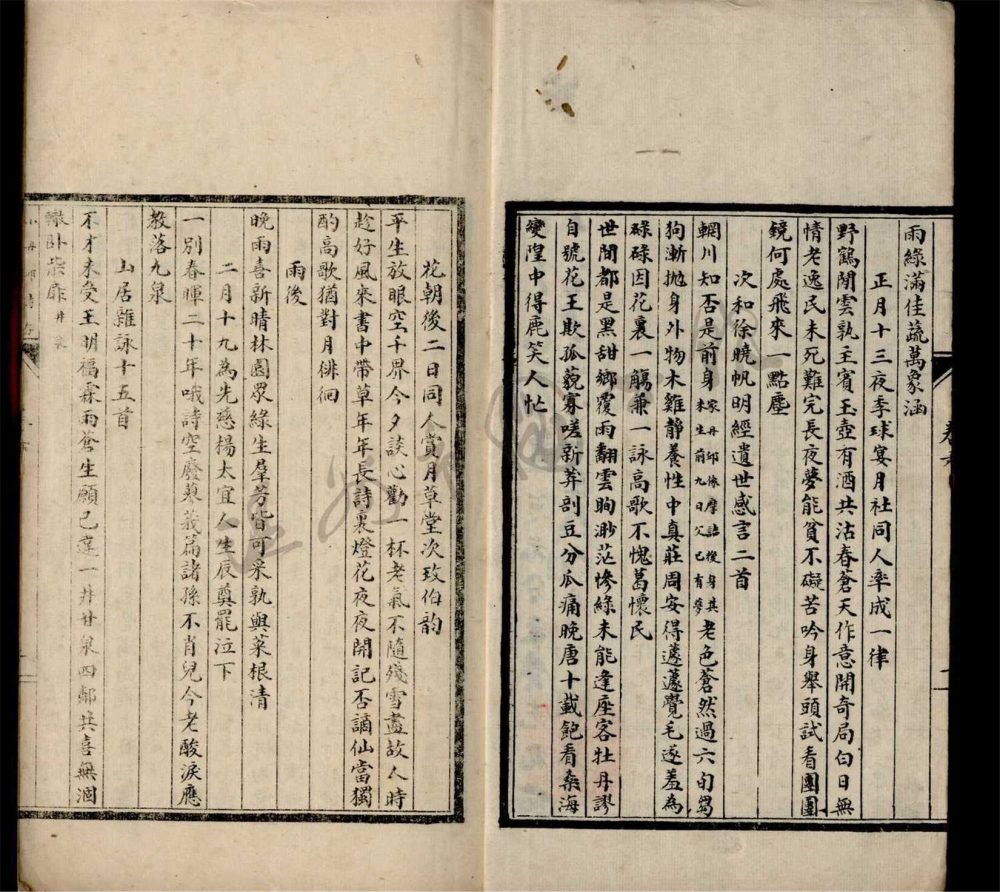 雨綠滿佳蔬萬象涵
正月十三夜季球宴月社同人率成一律
野鶴閒雲孰主賓玉壺有酒共沽春蒼天作意開奇局白日無
情老逸民未死難完長夜夢能貧不礙苦吟身舉頭試看團團
鏡何處飛來一點塵
次和徐曉帆明經遺世感言二首
輞川知否是前身家丹邱係摩詰後身其未生前九日父已有夢老色蒼然過六旬芻
狗漸拋身外物木雞靜養性中真莊周安得蘧蘧覺毛遂羞為
碌碌因花裏一觴兼一詠高歌不愧葛懷民
世間都是黑甜鄉覆雨翻雲眴渺茫慘綠未能逢座客牡丹謬
自號花王欺孤藐寡嗟新莽剖豆分瓜痛晚唐十載飽看桑海
變隍中得鹿笑人忙
花朝後二日同人賞月草堂次致伯韵
平生放眼空千界今夕談心勸一杯老氣不隨殘雪盡故人時
趁好風來書中帶草年年長詩裏燈花夜夜開記否謫仙當獨
酌高歌猶對月徘徊
雨後
晚雨喜新晴林園眾綠生羣芳皆可采孰與菜根清
二月十九為先慈楊太宜人生辰奠罷泣下
一別春暉二十年哦詩空廢蓼莪篇諸孫不肖兒今老酸淚應
教落九泉
山居雜詠十五首
不才未受王明福霖雨蒼生願已違一井甘泉四鄰共喜無涸
轍臥柴扉井泉